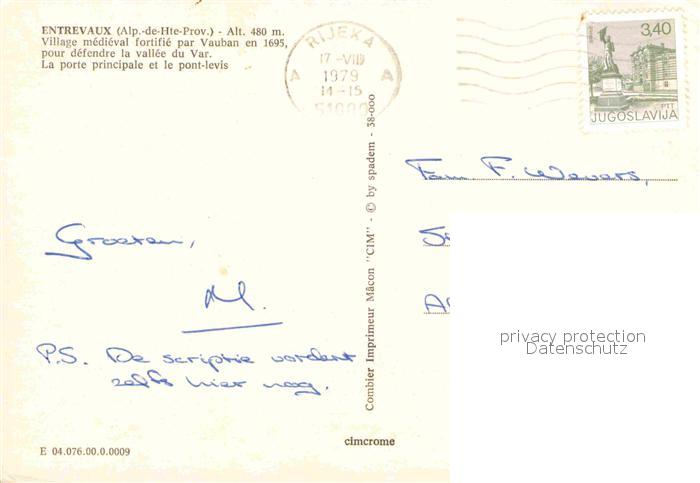 ENTREVAUX (Alp.-de-Hte-Prov.) - Alt. 480 m.
Village médiéval fortifié par Vauban en 1695,
pour défendre la vallée du Var.
La porte principale et le pont-levis
RIJEKA
17-VIII
1979
A A
14-15
51000
3,40
PTT
JUGOSLAVIJA
Fam. F. Wevers,
Groeten,
M.
P.S. De scriptie vordert
zelfs hier nog.
Combier Imprimeur Mâcon "CIM" - © by spadem - 38-000
privacy protection
Datenschutz
cimcrome
E 04.076.00.0.0009